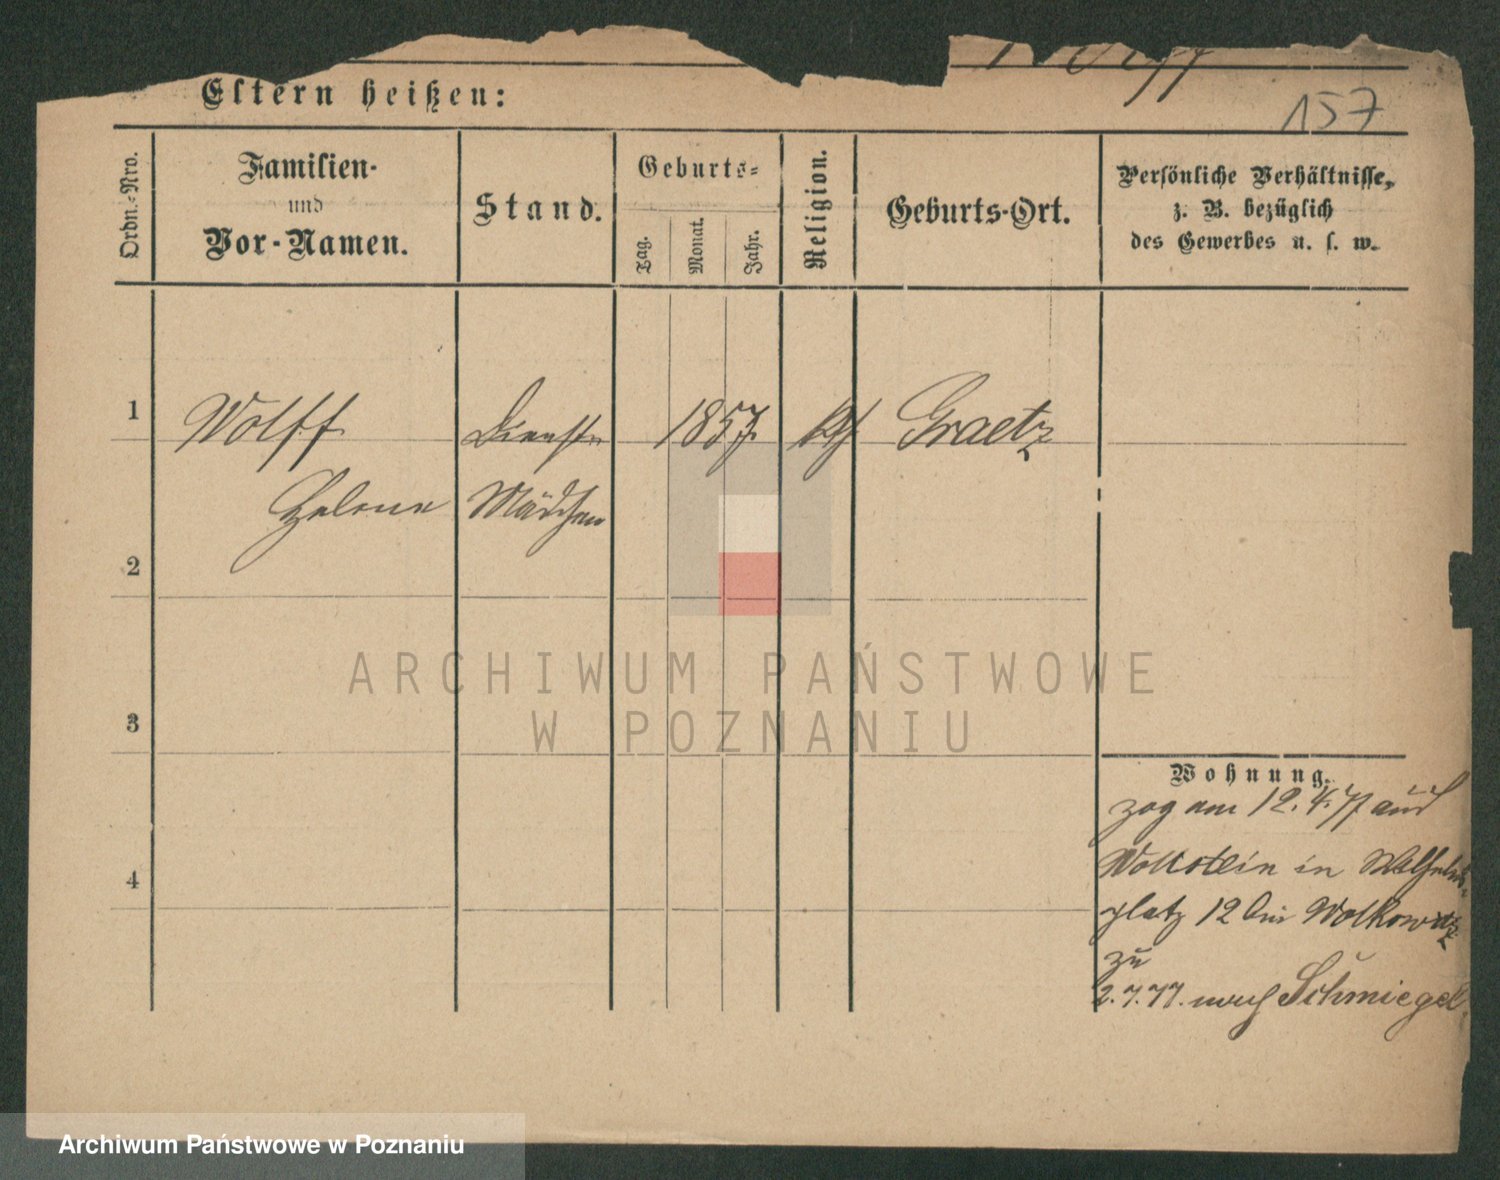 Wolff
157
Eltern heißen:
Ordn.-Nro.
Familien-
und
Vor-Namen.
Stand.
Geburts-
Tag.
Monat.
Jahr.
Religion.
Geburts-Ort.
Persönliche Verhältnisse,
z. B. bezüglich
des Gewerbes u. s. w.
1
Wolff
Dienst-
1857.
kth
Graetz
Helene
Mädchen
2
ARCHIWUM PAŃSTWOWE
W POZNANIU
3
Wohnung.
zog am 12.4.77 aus
Wollstein in Wilhelms-
platz 12 bei Wolkowitz
zu
2.7.77. nach Schmiegel.
4
Archiwum Państwowe w Poznaniu